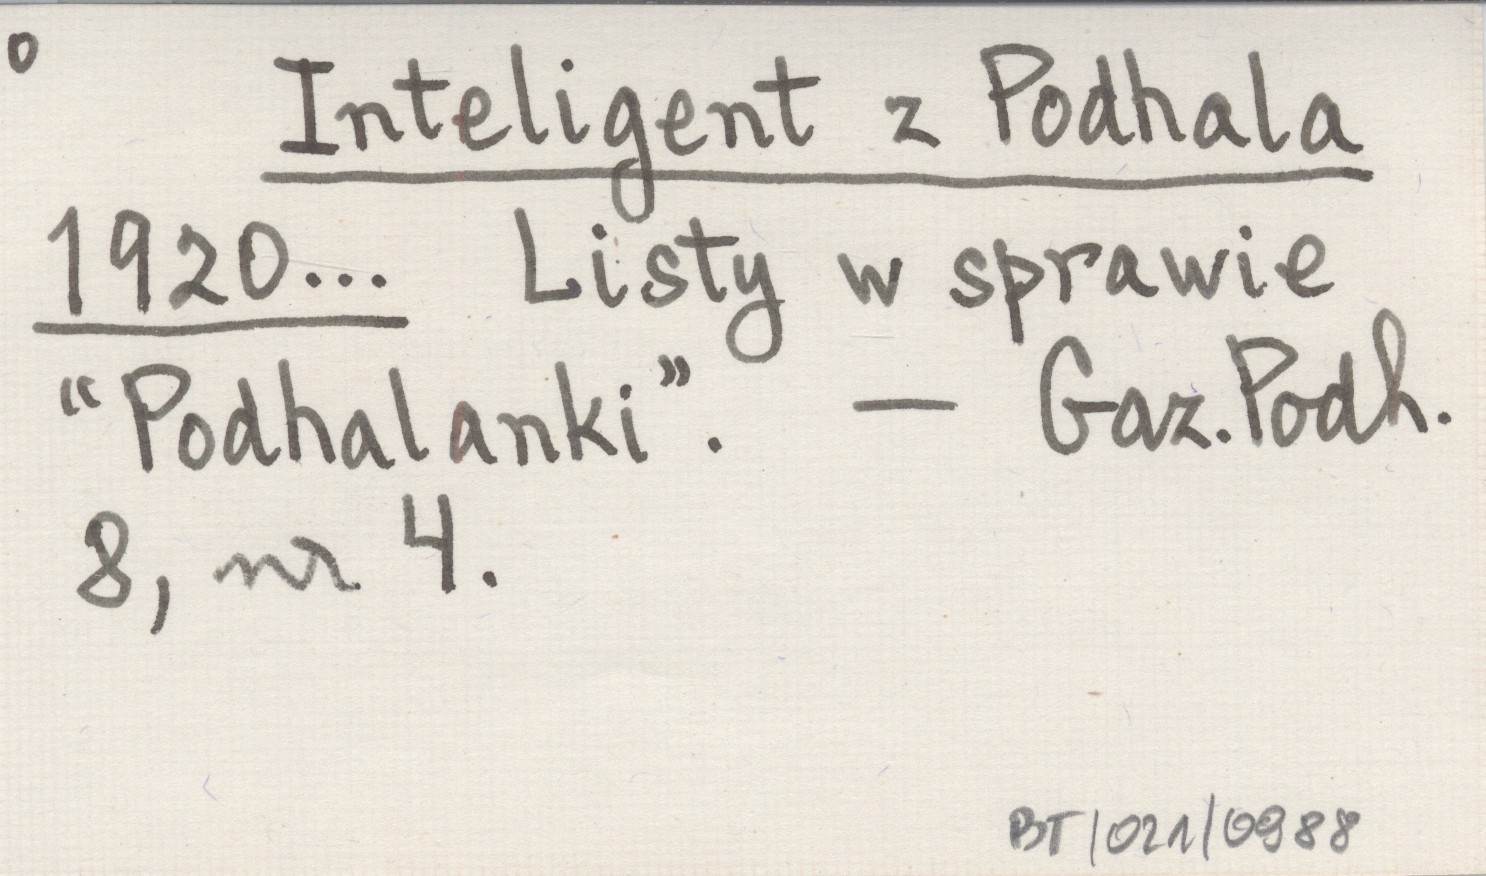 o
Inteligent z Podhala
1920... Listy w sprawie
“Podhalanki”. — Gaz. Podh.
8, nr 4.
BT/021/0988